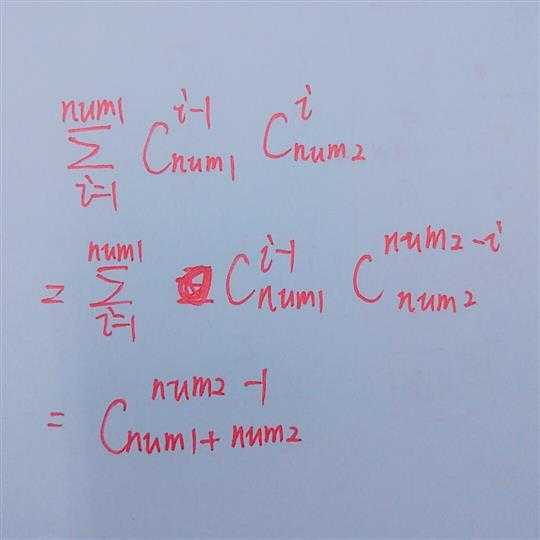 \sum_{i=1}^{num1} C_{num1}^{i-1} C_{num2}^{i}
= \sum_{i=1}^{num1} C_{num1}^{i-1} C_{num2}^{num2-i}
= C_{num1+num2}^{num2-1}